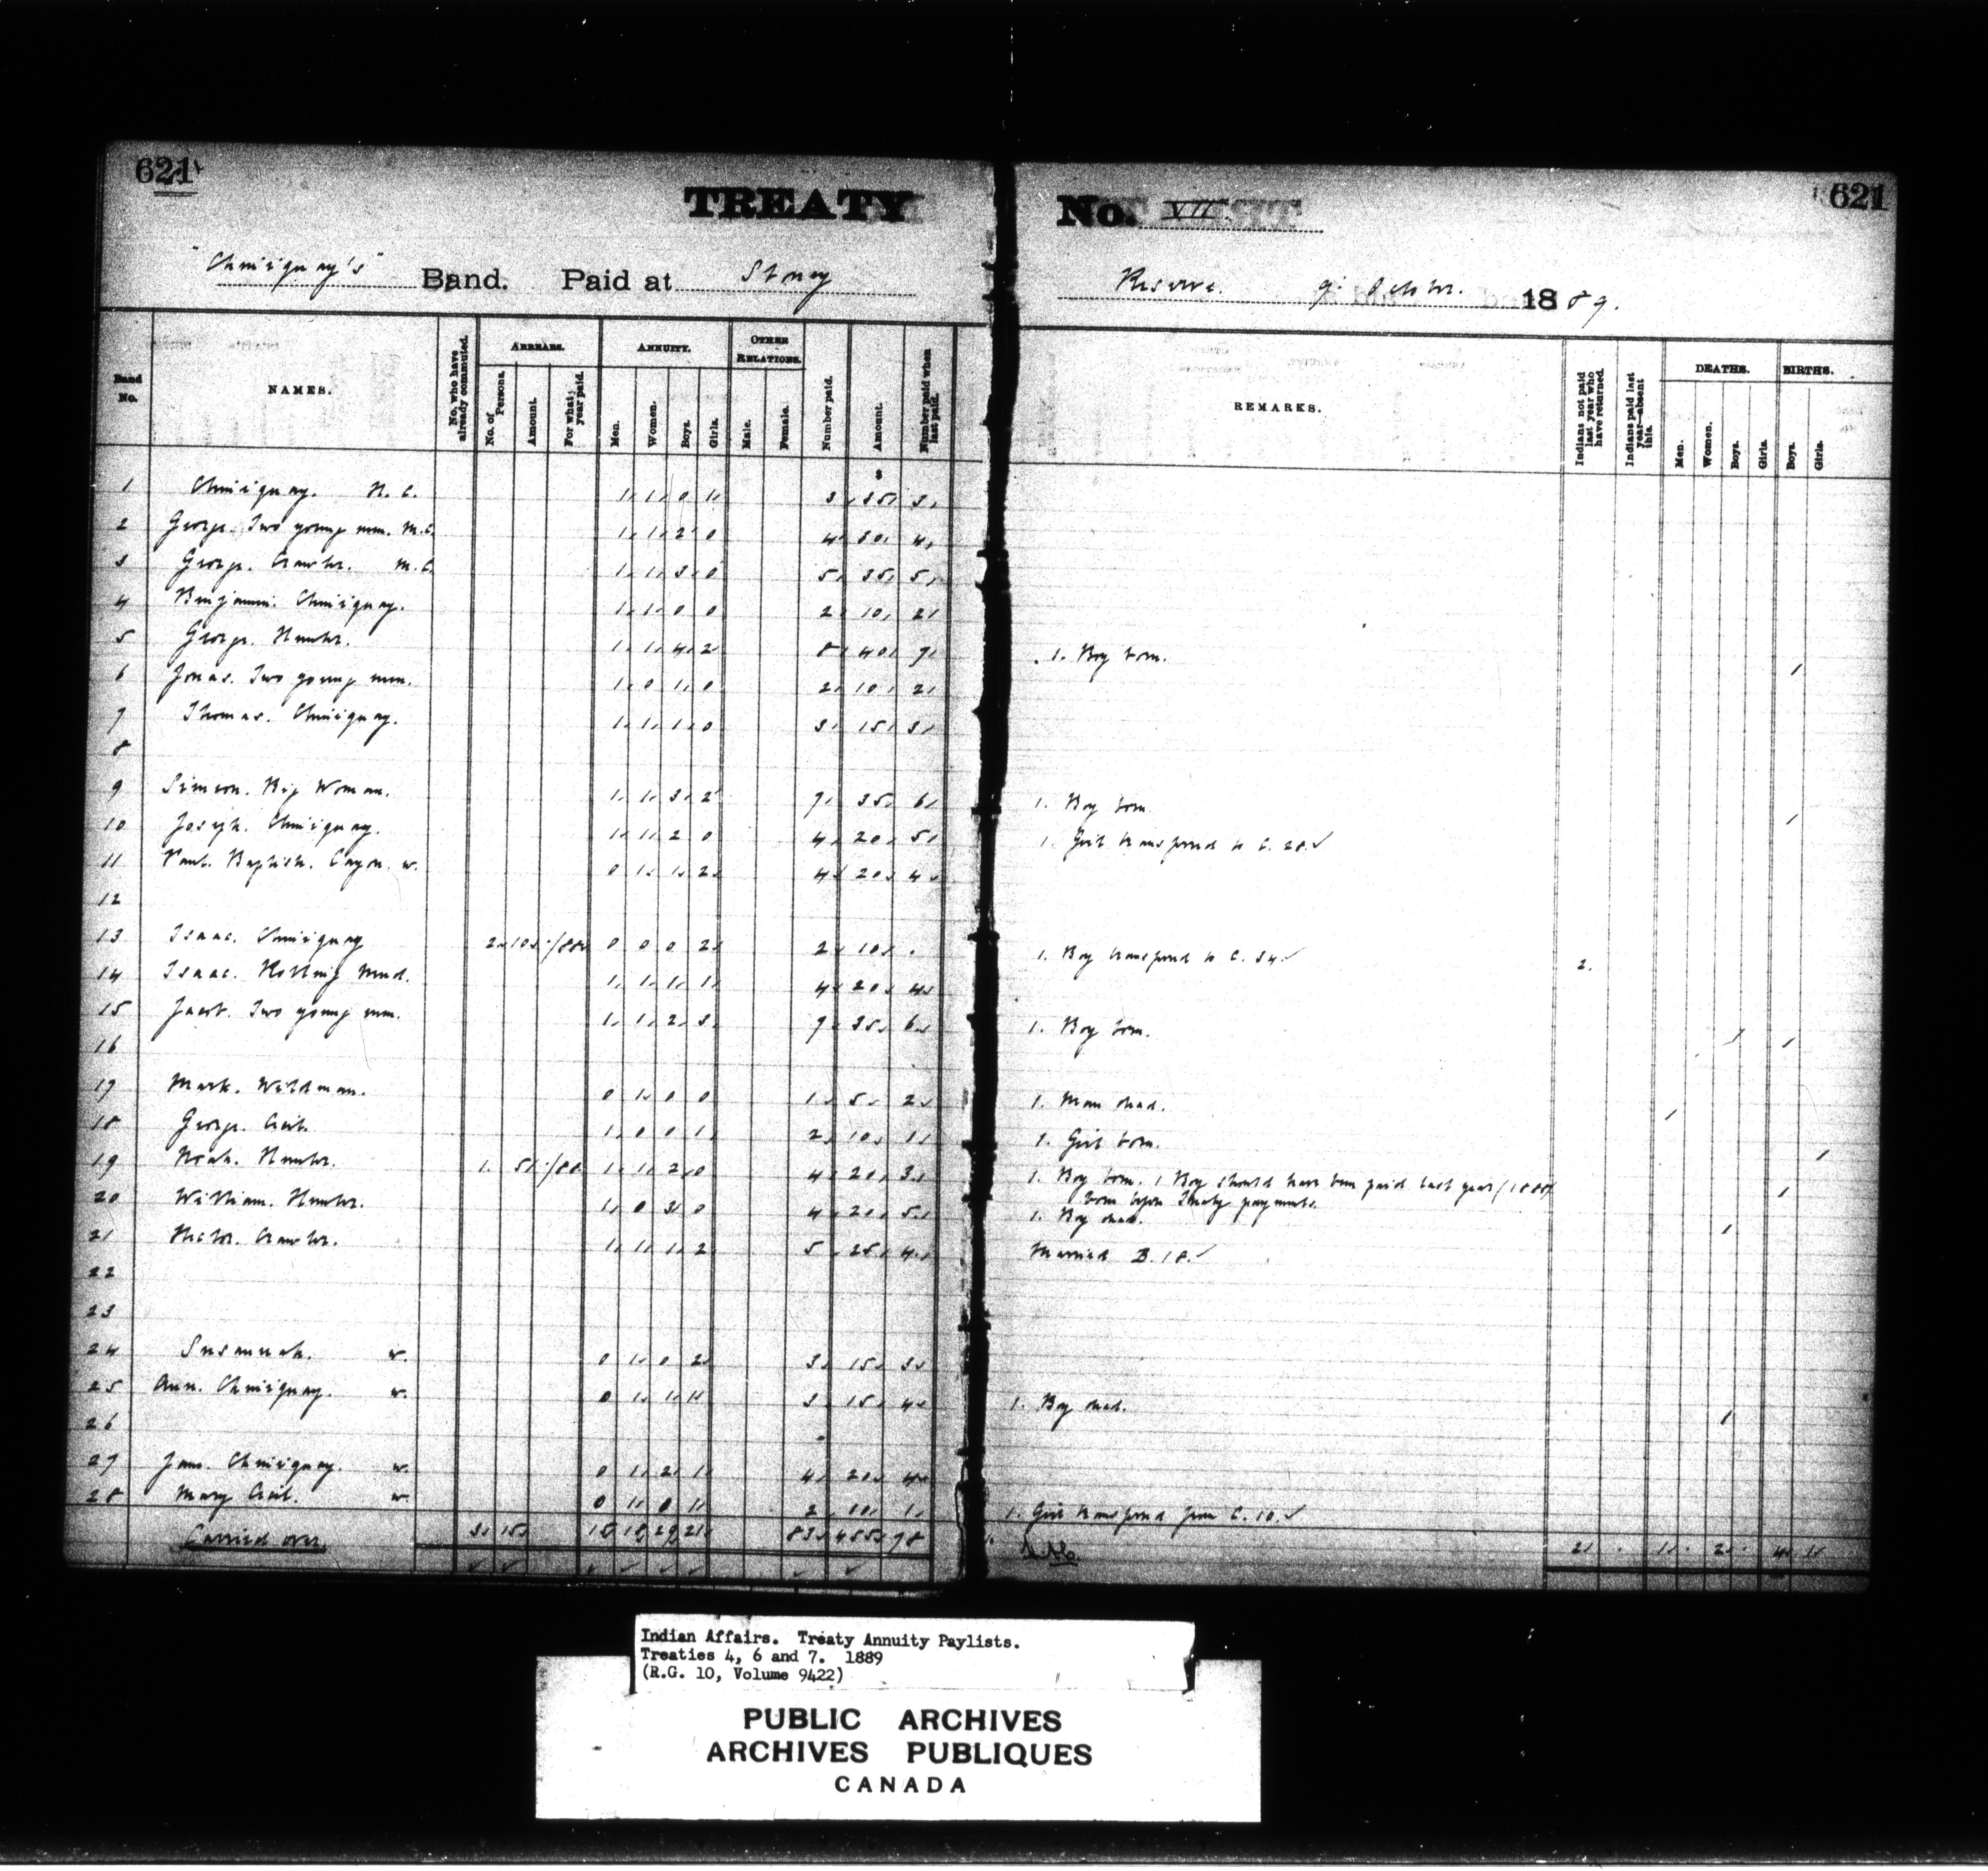 621
621
TREATY No. VII
"Chiniquay's" Band. Paid at Stoney Reserve. 9. Octbr. 1889.
Band No.
NAMES.
No. who have already commuted.
ARREARS.
No. of Persons.
Amount.
For what year paid.
ANNUITY.
Men.
Women.
Boys.
Girls.
OTHER RELATIONS.
Male.
Female.
Number paid.
Amount.
Number paid when last paid.
REMARKS.
Indians not paid last year who have returned.
Indians paid last year—absent this.
DEATHS.
Men.
Women.
Boys.
Girls.
BIRTHS.
Boys.
Girls.
$
1 Chiniquay. H.C. 1 1 0 1 3 35 3
2 George. Two young men. M.C. 1 1 2 0 4 30 4
3 George. Crawler. M.C. 1 1 3 0 5 35 5
4 Benjamin. Chiniquay. 1 1 0 0 2 10 2
5 George. Hunter. 1 1 4 2 8 40 7 1. Boy born. 1
6 Jonas. Two young men. 1 0 1 0 2 10 2
7 Thomas. Chiniquay. 1 1 1 0 3 15 3
8
9 Simeon. Big Woman. 1 1 3 2 7 35 6 1. Boy born. 1
10 Joseph. Chiniquay. 1 1 2 0 4 20 5 1. Girl transferred to C. 28. ✓
11 Paul. Baptiste. Cayou. w. 0 1 1 2 4 20 4
12
13 Isaac. Chiniquay 2 10 /88 0 0 0 2 2 10 . 1. Boy transferred to C. 34. ✓ 2.
14 Isaac. Rolling Mud. 1 1 1 1 4 20 4
15 Jacob. Two young men. 1 1 2 3 7 35 6 1. Boy born. 1
16
17 Mark. Wildman. 0 1 0 0 1 5 2 1. Man dead. 1
18 George. Cecil. 1 0 0 1 2 10 1 1. Girl born. 1
19 Noah. Hunter. 1 5 /88 1 1 2 0 4 20 3 1. Boy born. 1 Boy should have been paid last year (1888) 1
born before Treaty payments.
20 William. Hunter. 1 0 3 0 4 20 5 1. Boy dead. 1
21 Hector. Crawler. 1 1 1 2 5 25 4 Married B. 18. ✓
22
23
24 Susannah. w. 0 1 0 2 3 15 3
25 Ann. Chiniquay. w. 0 1 1 1 3 15 4 1. Boy dead. 1
26
27 Jane. Chiniquay. w. 0 1 2 1 4 20 4
28 Mary Cecil. w. 0 1 0 1 2 10 1 1. Girl transferred from C. 10. ✓
Carried over 3 15 15 18 29 21 83 455 78 2 1 2 4 1
Indian Affairs. Treaty Annuity Paylists.
Treaties 4, 6 and 7. 1889
(R.G. 10, Volume 9422)
PUBLIC ARCHIVES
ARCHIVES PUBLIQUES
CANADA